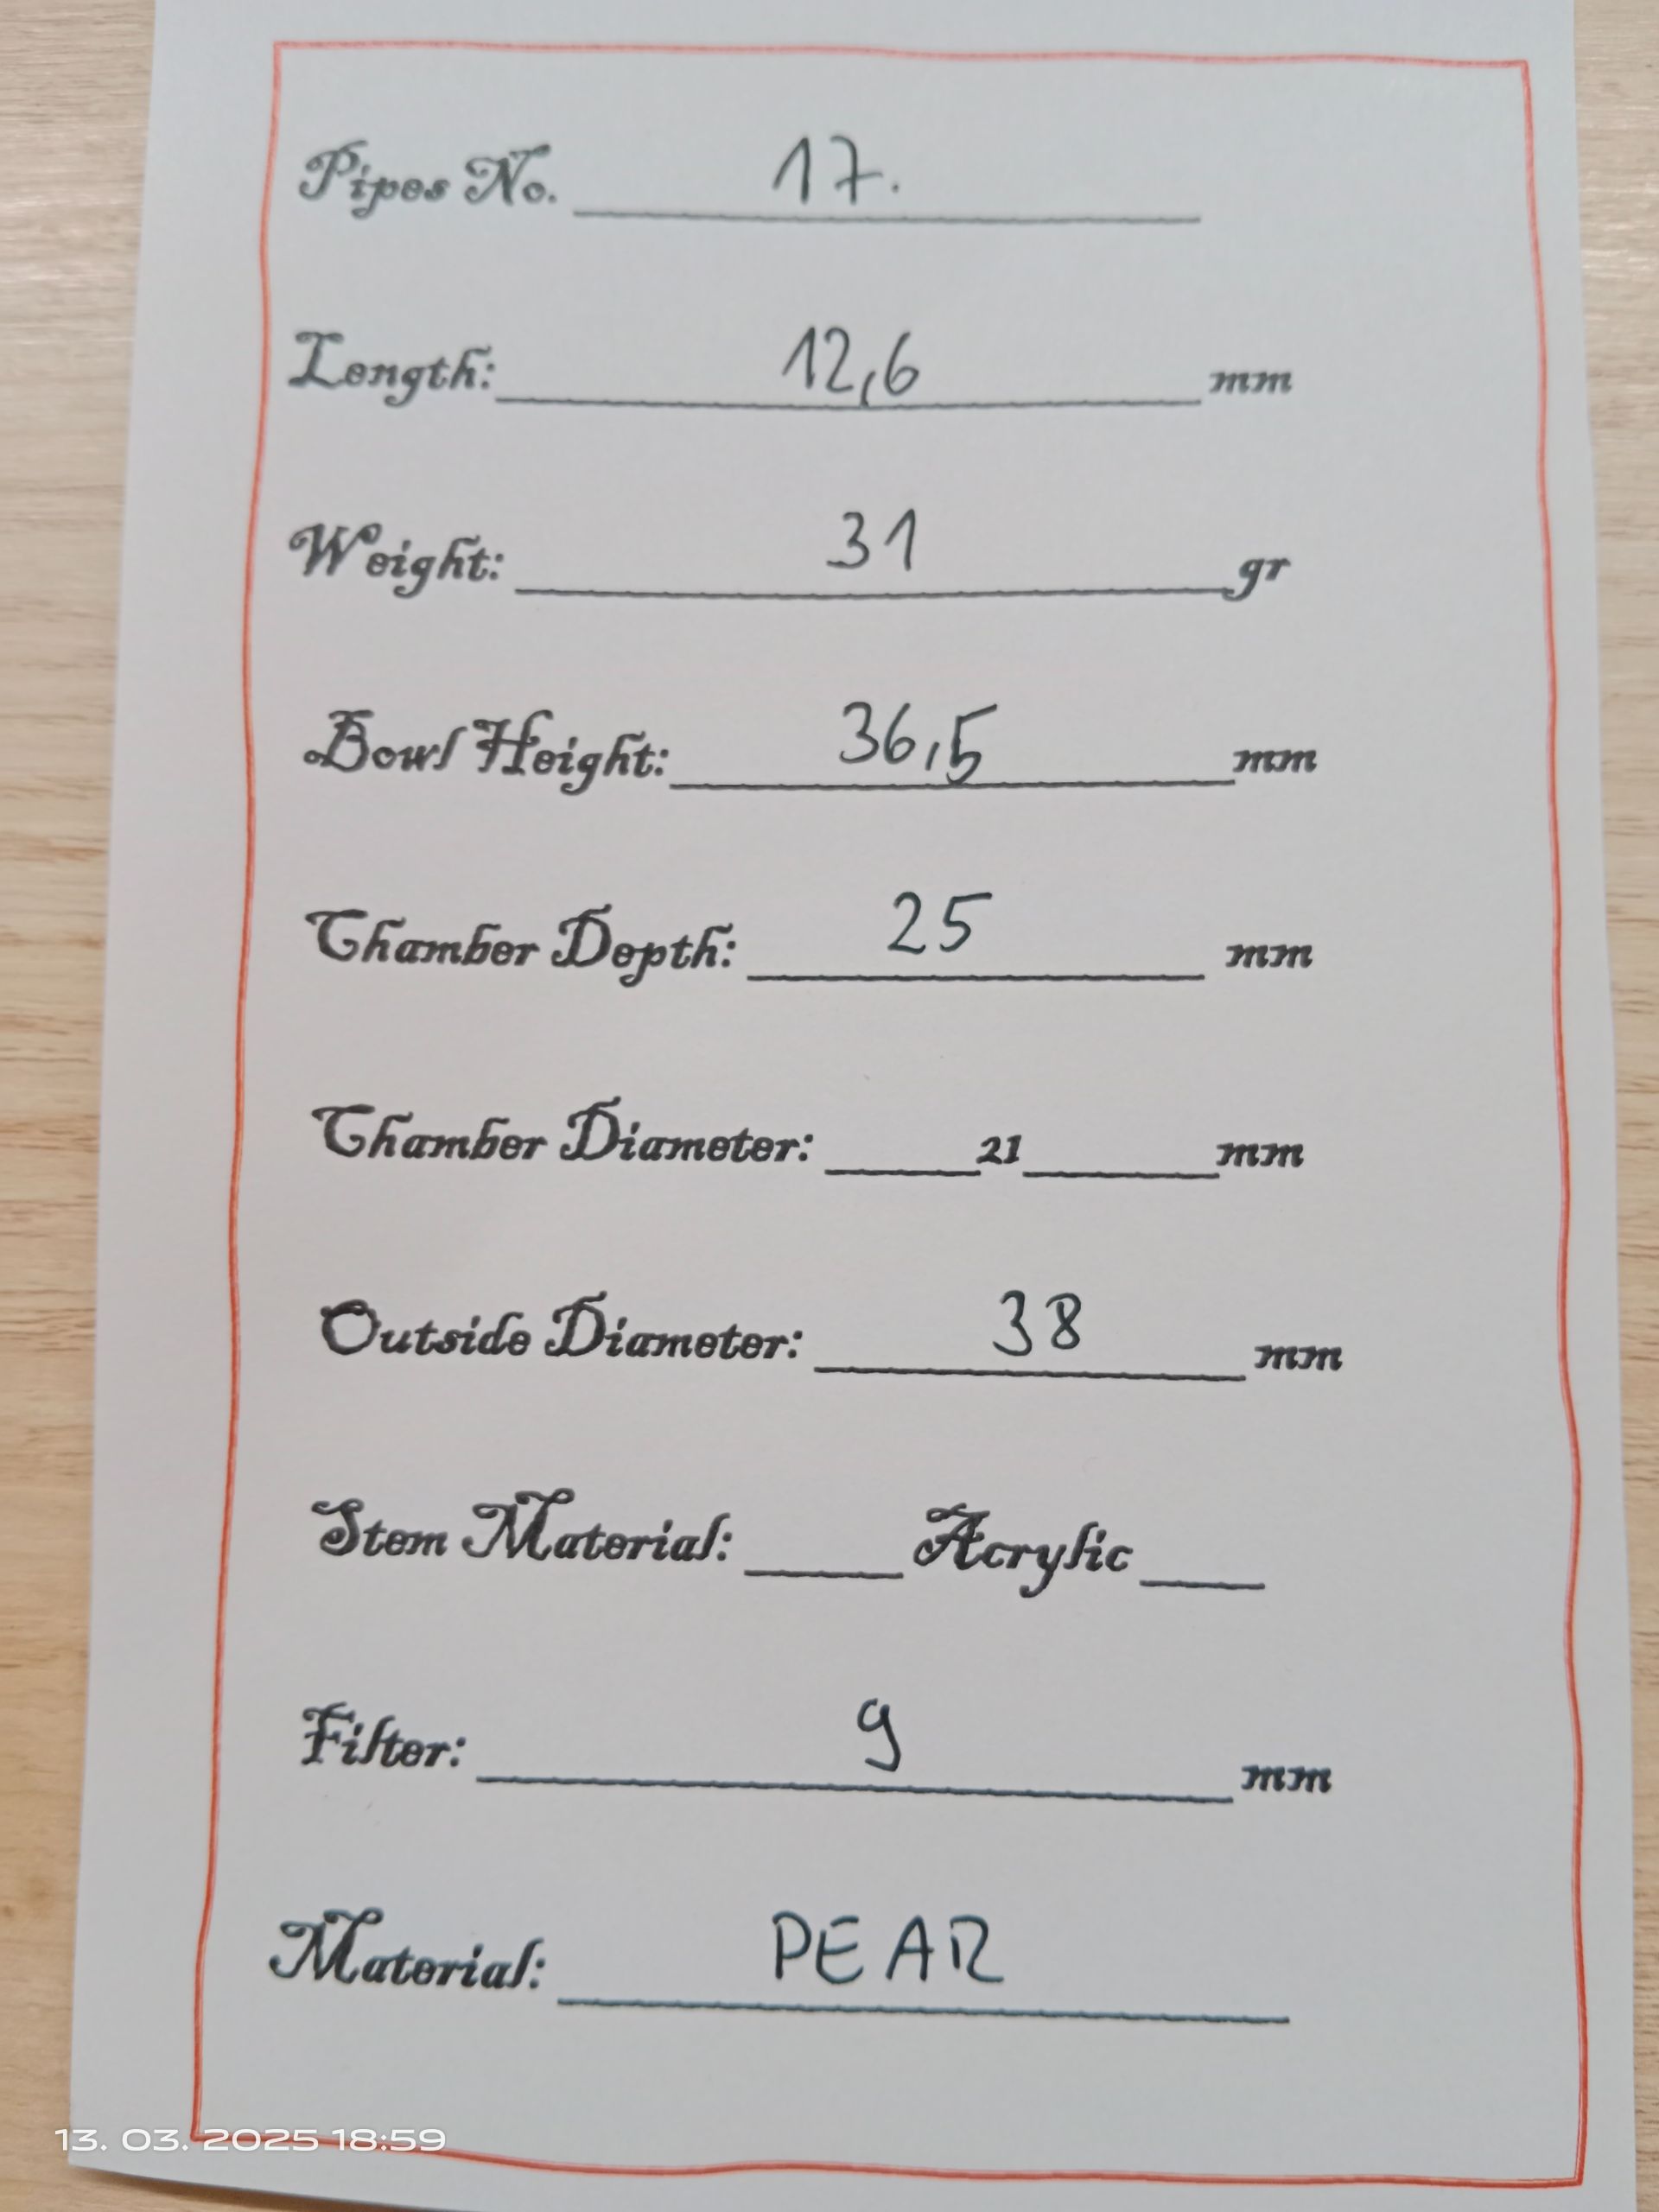 Pipes No. 17.
Length: 12,6 mm
Weight: 31 gr
Bowl Height: 36,5 mm
Chamber Depth: 25 mm
Chamber Diameter: 21 mm
Outside Diameter: 38 mm
Stem Material: Acrylic
Filter: 9 mm
Material: PEAR
13. 03. 2025 18:59